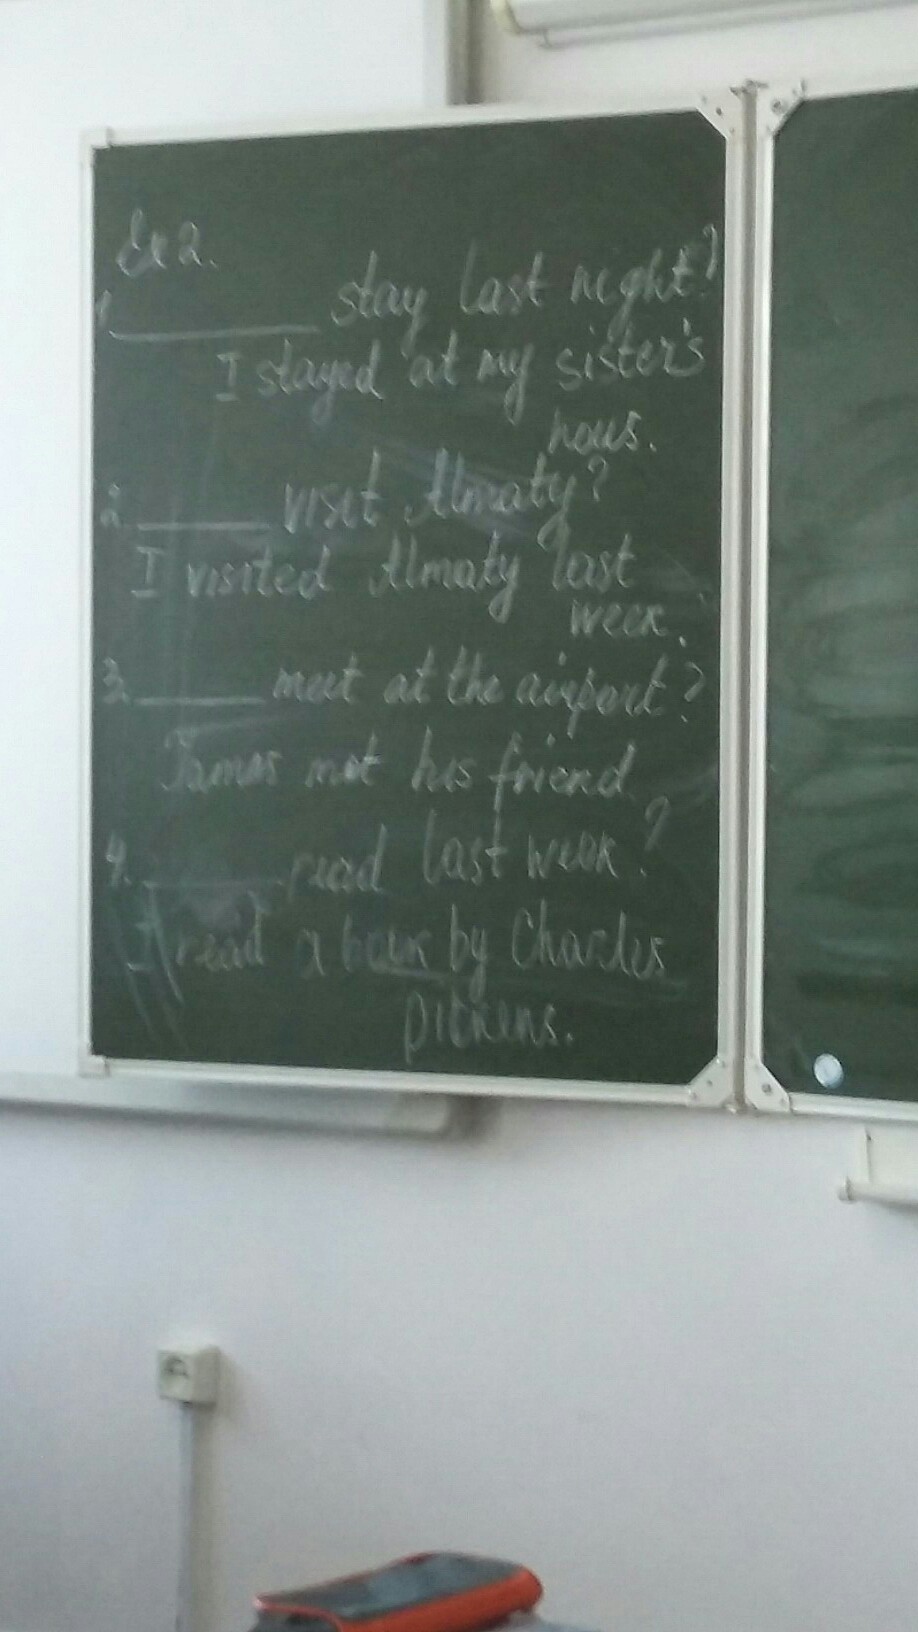 Ex 2.
1. ________ stay last night?
I stayed at my sister's
hous.
2. ______ visit Almaty?
I visited Almaty last
week.
3. ______ meet at the airport?
James met his friend
4. ______ read last week?
I read a book by Charles
Dickens.